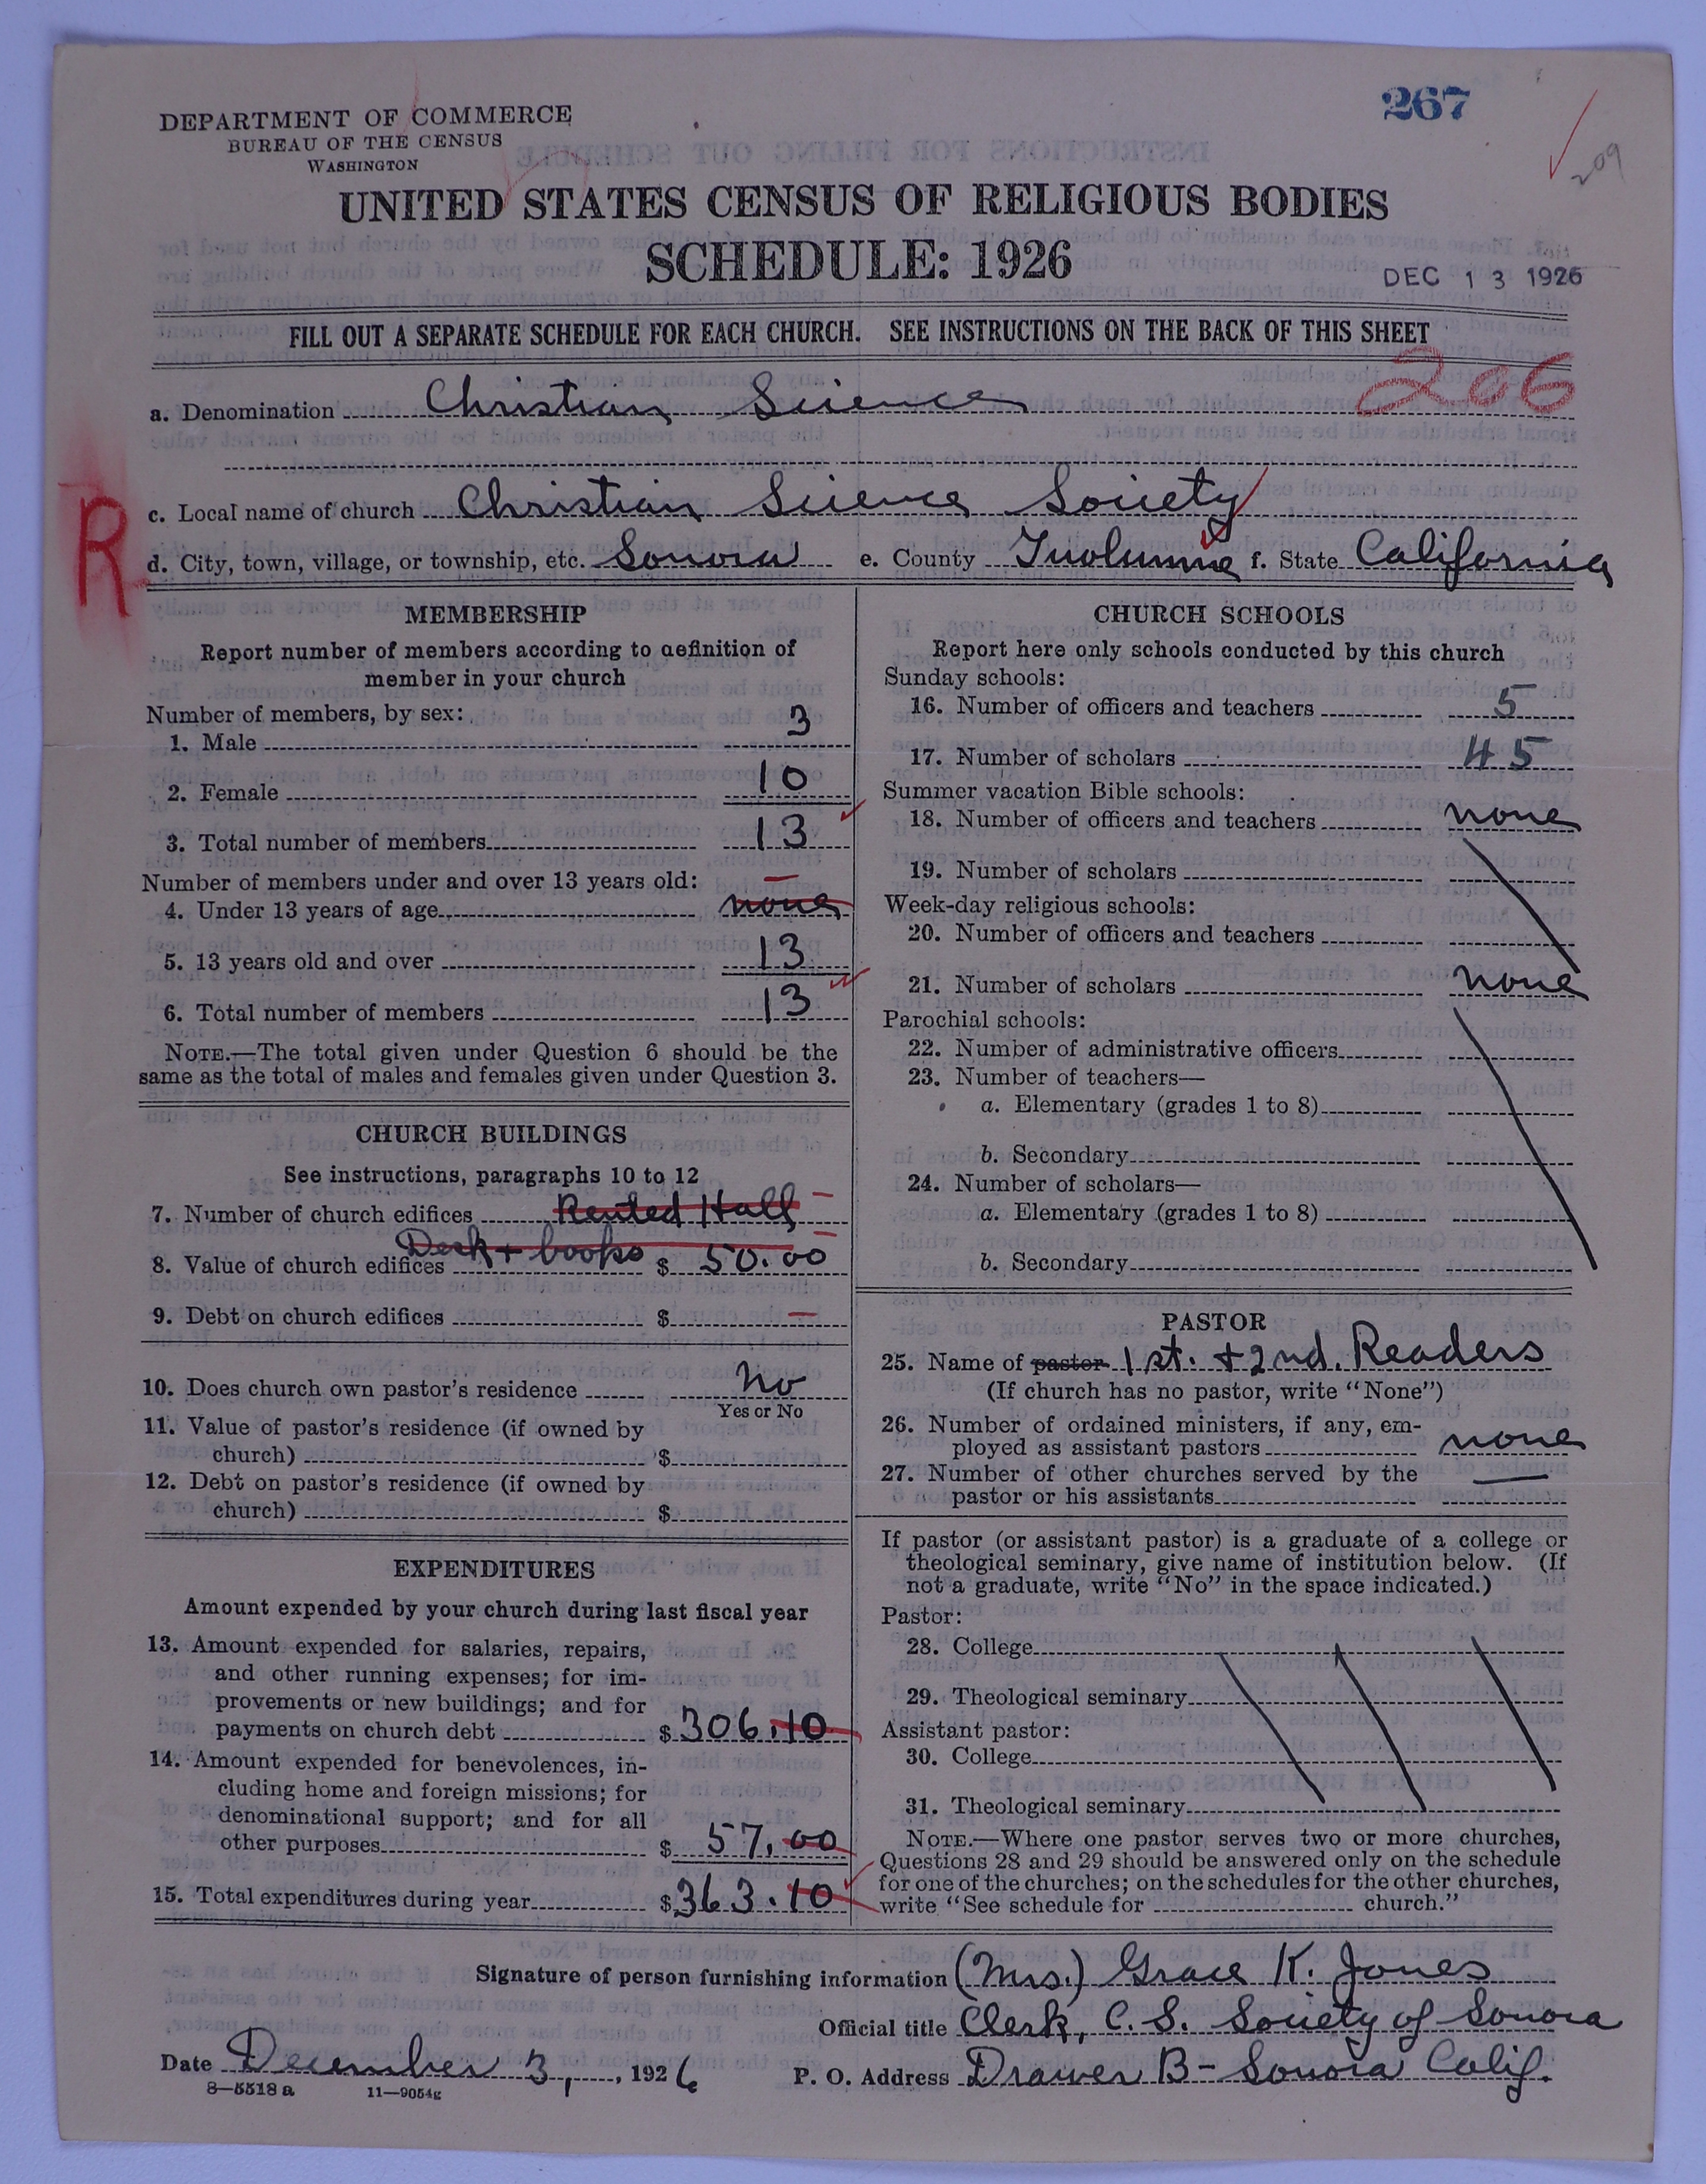 267
DEPARTMENT OF COMMERCE
BUREAU OF THE CENSUS
WASHINGTON
209
UNITED STATES CENSUS OF RELIGIOUS BODIES
SCHEDULE: 1926
DEC 13 1926
FILL OUT A SEPARATE SCHEDULE FOR EACH CHURCH. SEE INSTRUCTIONS ON THE BACK OF THIS SHEET
206
a. Denomination Christian Science
R
c. Local name of church Christian Science Society
d. City, town, village, or township, etc. Sonora e. County Tuolumne f. State California
MEMBERSHIP
Report number of members according to definition of
member in your church
Number of members, by sex:
1. Male 3
2. Female 10
3. Total number of members 13
Number of members under and over 13 years old:
4. Under 13 years of age none
5. 13 years old and over 13
6. Total number of members 13
NOTE.—The total given under Question 6 should be the
same as the total of males and females given under Question 3.
CHURCH BUILDINGS
See instructions, paragraphs 10 to 12
7. Number of church edifices Rented Hall
8. Value of church edifices Desk + books $ 50.00
9. Debt on church edifices $ —
10. Does church own pastor's residence No
Yes or No
11. Value of pastor's residence (if owned by
church) $
12. Debt on pastor's residence (if owned by
church) $
EXPENDITURES
Amount expended by your church during last fiscal year
13. Amount expended for salaries, repairs,
and other running expenses; for im-
provements or new buildings; and for
payments on church debt $306.10
14. Amount expended for benevolences, in-
cluding home and foreign missions; for
denominational support; and for all
other purposes $ 57.00
15. Total expenditures during year $363.10
CHURCH SCHOOLS
Report here only schools conducted by this church
Sunday schools:
16. Number of officers and teachers 5
17. Number of scholars 45
Summer vacation Bible schools:
18. Number of officers and teachers none
19. Number of scholars
Week-day religious schools:
20. Number of officers and teachers
21. Number of scholars none
Parochial schools:
22. Number of administrative officers
23. Number of teachers—
a. Elementary (grades 1 to 8)
b. Secondary
24. Number of scholars—
a. Elementary (grades 1 to 8)
b. Secondary
PASTOR
25. Name of pastor 1st. + 2nd. Readers
(If church has no pastor, write "None")
26. Number of ordained ministers, if any, em-
ployed as assistant pastors none
27. Number of other churches served by the
pastor or his assistants —
If pastor (or assistant pastor) is a graduate of a college or
theological seminary, give name of institution below. (If
not a graduate, write "No" in the space indicated.)
Pastor:
28. College
29. Theological seminary
Assistant pastor:
30. College
31. Theological seminary
NOTE.—Where one pastor serves two or more churches,
Questions 28 and 29 should be answered only on the schedule
for one of the churches; on the schedules for the other churches,
write "See schedule for church."
Signature of person furnishing information (Mrs.) Grace K. Jones
Official title Clerk, C. S. Society of Sonora
Date December 3, 1926 P. O. Address Drawer B - Sonora Calif.
8—5518 a 11—9054g